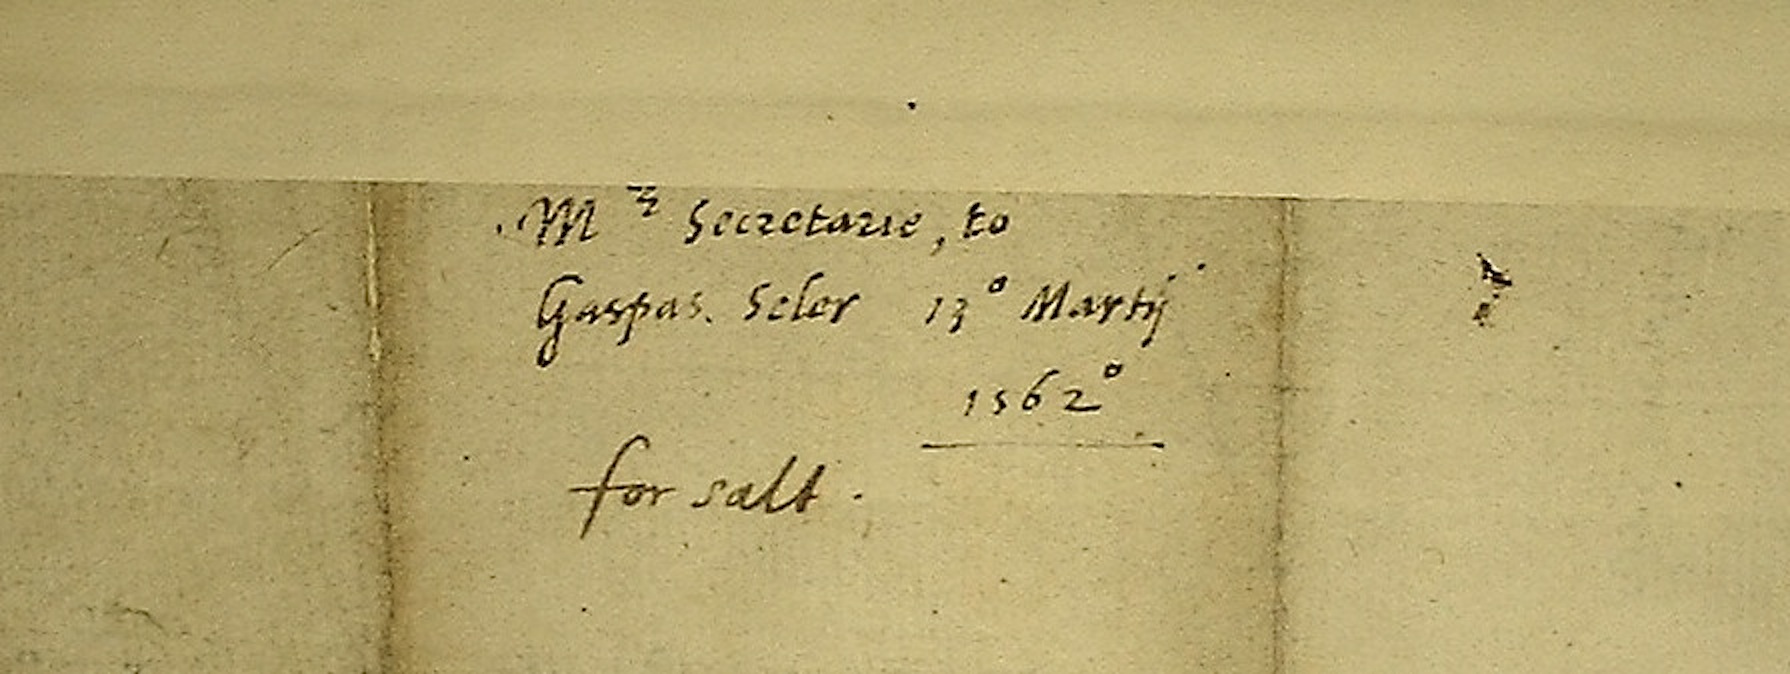 Mr Secretarie, to
Gaspar. Seler 13° Martij
1562°
for salt.